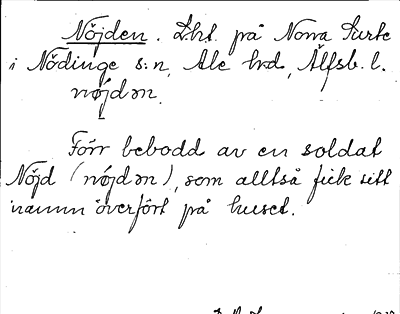 Nöjden. Lht. på Norra Surte
i Nödinge s:n, Ale hd, Älfsb. l.
nøjdən.
Förr bebodd av en soldat
Nöjd (nǿjdən), som alltså fick sitt
namn överfört på huset.